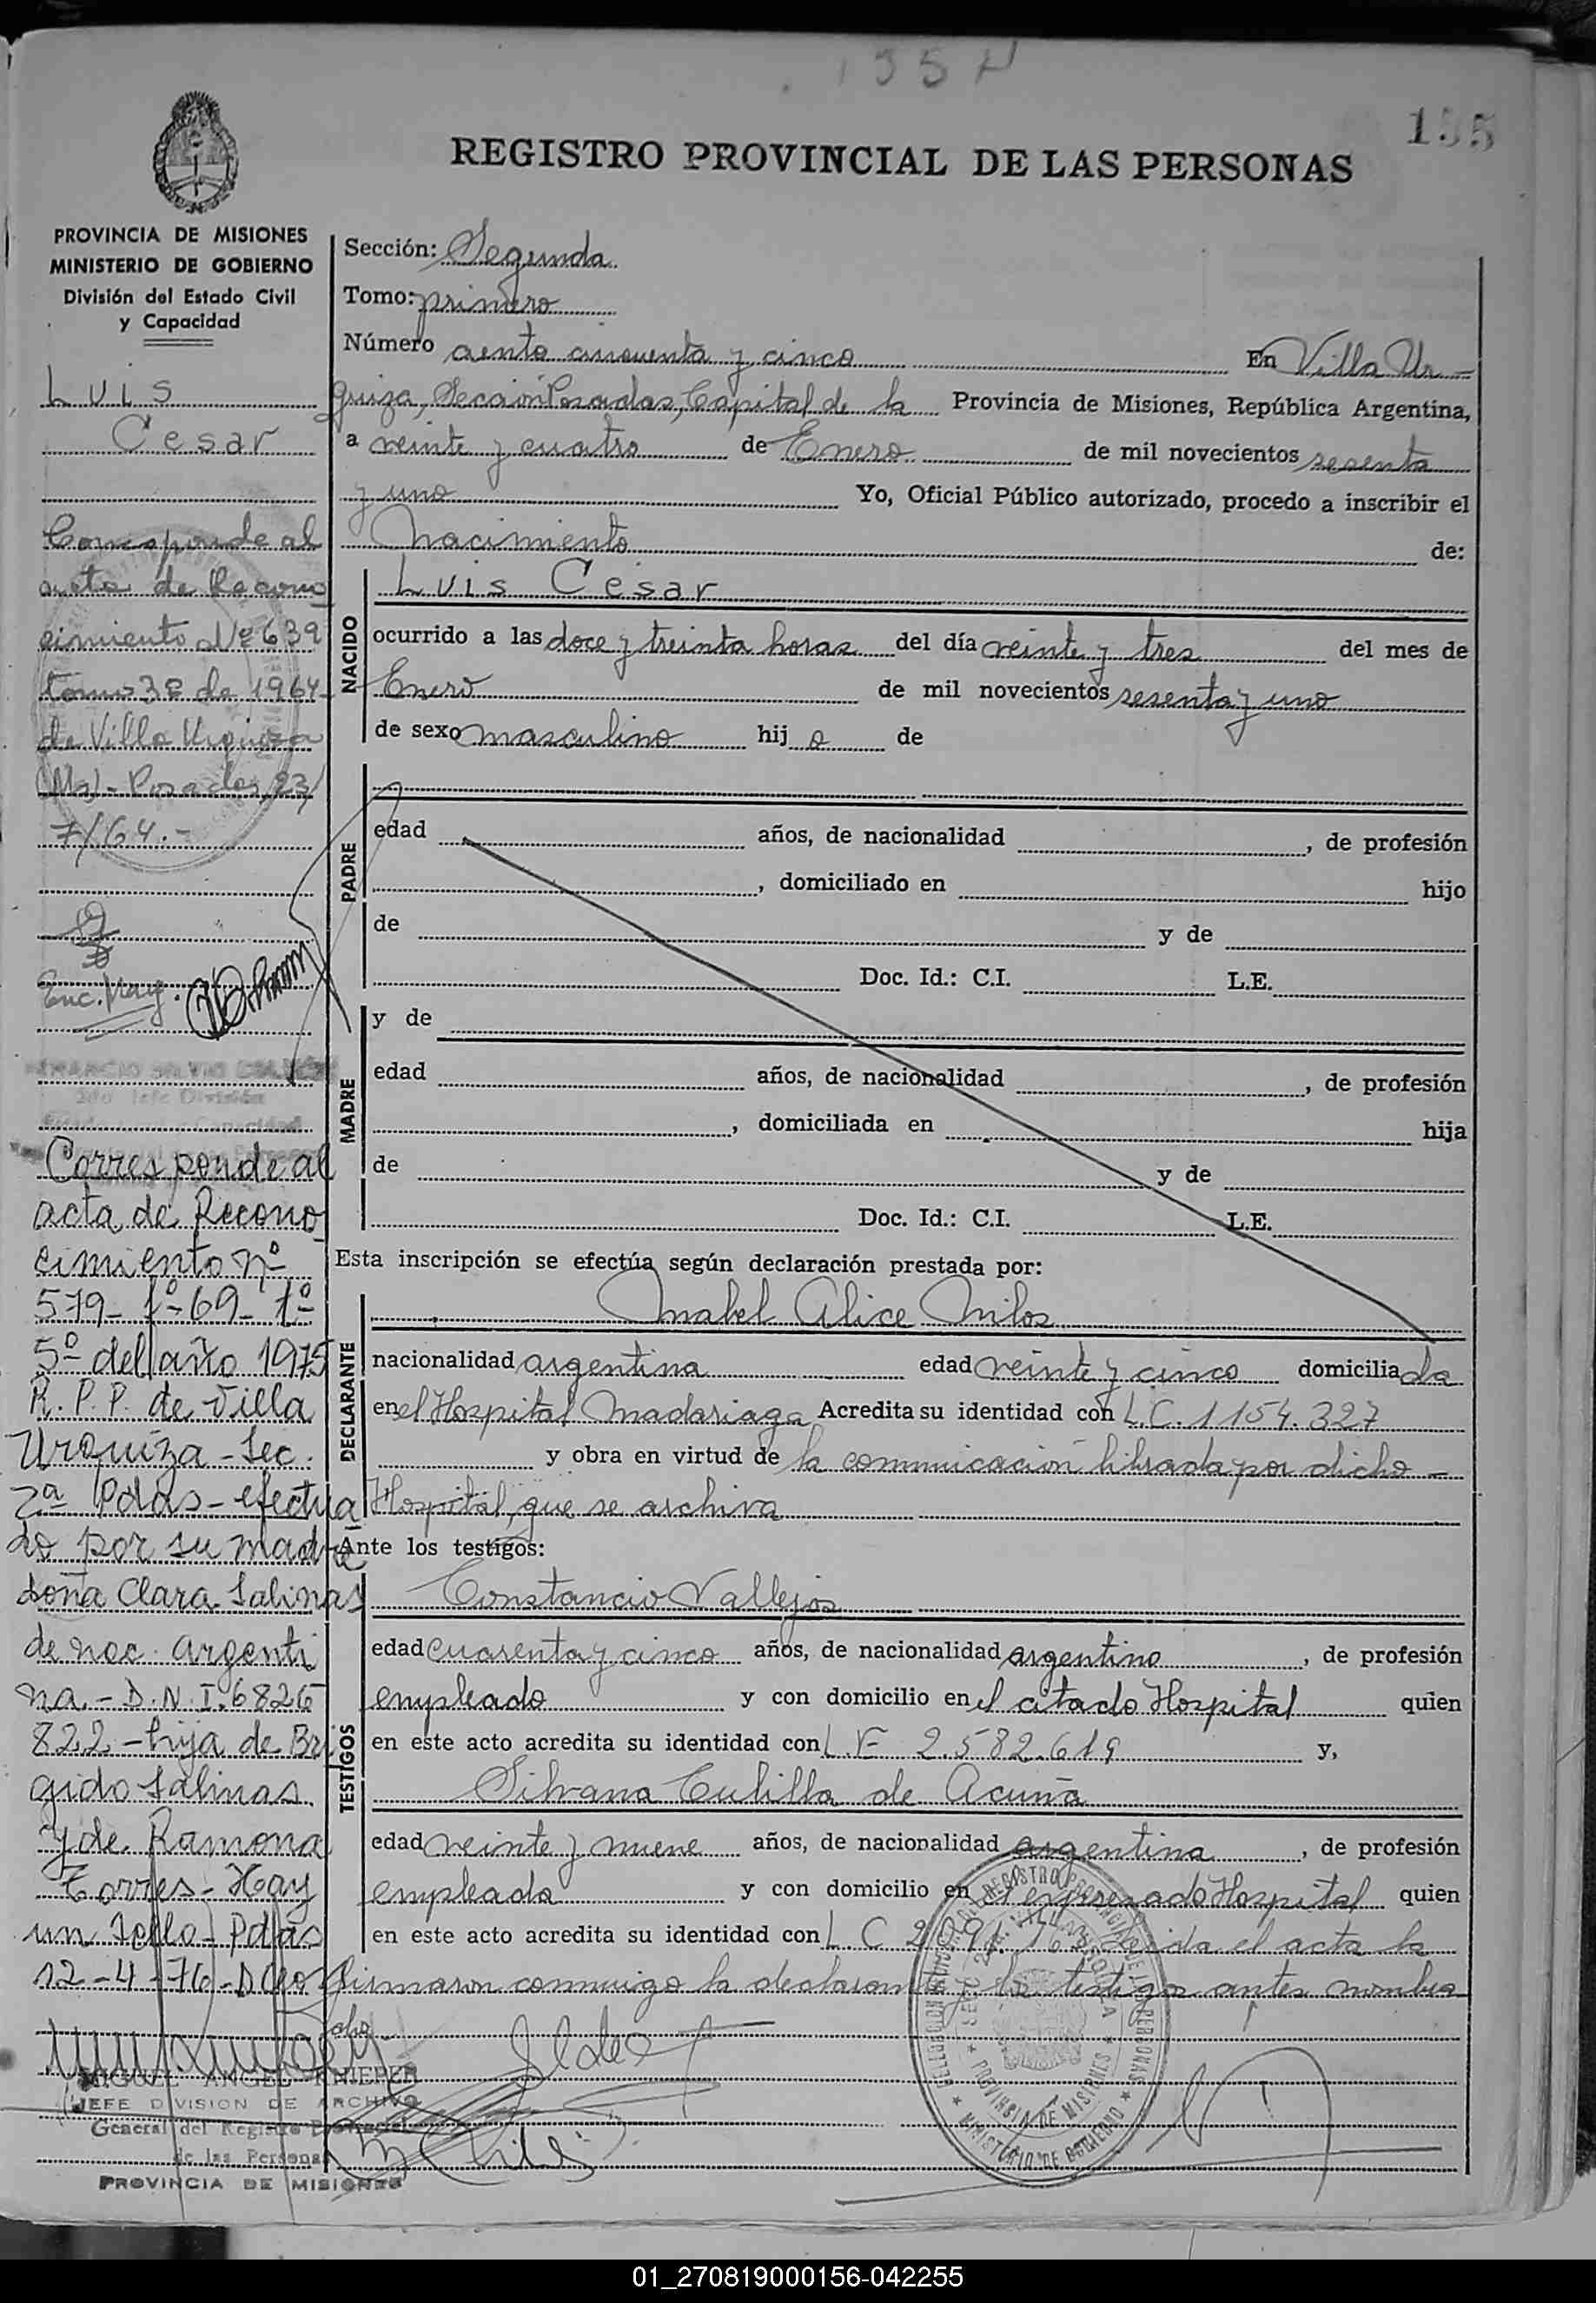 155
REGISTRO PROVINCIAL DE LAS PERSONAS
PROVINCIA DE MISIONES
MINISTERIO DE GOBIERNO
División del Estado Civil
y Capacidad
Luis
Cesar
Corresponde al
acta de Recono
cimiento Nº 639
tomo 3º de 1964
de Villa Urquiza
(Ms)- Posadas, 23/
7/64.-
Enc. May.
2do Jefe División
Corresponde al
acta de Recono
cimiento nº
579- fº-69- tº
5º del año 1975
R. P. P. de Villa
Urquiza - Sec.
2ª Pdas - efectua
do por su madre
doña Clara Salinas
de nac. argenti
na - D.N.I. 6826
822 - hija de Bri
gido Salinas
y de Ramona
Torres - Hay
un sello - Pdas
12-4-76-
MIGUEL ANGEL KNIEPER
JEFE DIVISION DE ARCHIVO
General del Registro Provincial
de las Personas
PROVINCIA DE MISIONES
Sección: Segunda
Tomo: primero
Número ciento cincuenta y cinco En Villa Ur-
quiza, Sección Posadas, Capital de la Provincia de Misiones, República Argentina,
a veinte y cuatro de Enero de mil novecientos sesenta
y uno Yo, Oficial Público autorizado, procedo a inscribir el
Nacimiento de:
NACIDO
Luis Cesar
ocurrido a las doce y treinta horas del día veinte y tres del mes de
Enero de mil novecientos sesenta y uno
de sexo masculino hij o de
PADRE
edad años, de nacionalidad , de profesión
, domiciliado en hijo
de y de
Doc. Id.: C.I. L.E.
MADRE
y de
edad años, de nacionalidad , de profesión
, domiciliada en hija
de y de
Doc. Id.: C.I. L.E.
Esta inscripción se efectúa según declaración prestada por:
DECLARANTE
Mabel Alice Milos
nacionalidad argentina edad veinte y cinco domicilia da
en el Hospital Madariaga Acredita su identidad con L.C. 1154.327
y obra en virtud de la comunicación librada por dicho -
Hospital, que se archiva
Ante los testigos:
TESTIGOS
Constancio Vallejos
edad cuarenta y cinco años, de nacionalidad argentino , de profesión
empleado y con domicilio en el citado Hospital quien
en este acto acredita su identidad con L.E 2.582.619 y,
Silvana Cubilla de Acuña
edad veinte y nueve años, de nacionalidad argentina , de profesión
empleada y con domicilio en el expresado Hospital quien
en este acto acredita su identidad con L.C leida el acta la
firmaron conmigo la declarante y los testigos antes nombra
dos
DELEGACION REGISTRO PROVINCIAL DE LAS PERSONAS
PROVINCIA DE MISIONES
MINISTERIO DE GOBIERNO
01_270819000156-042255